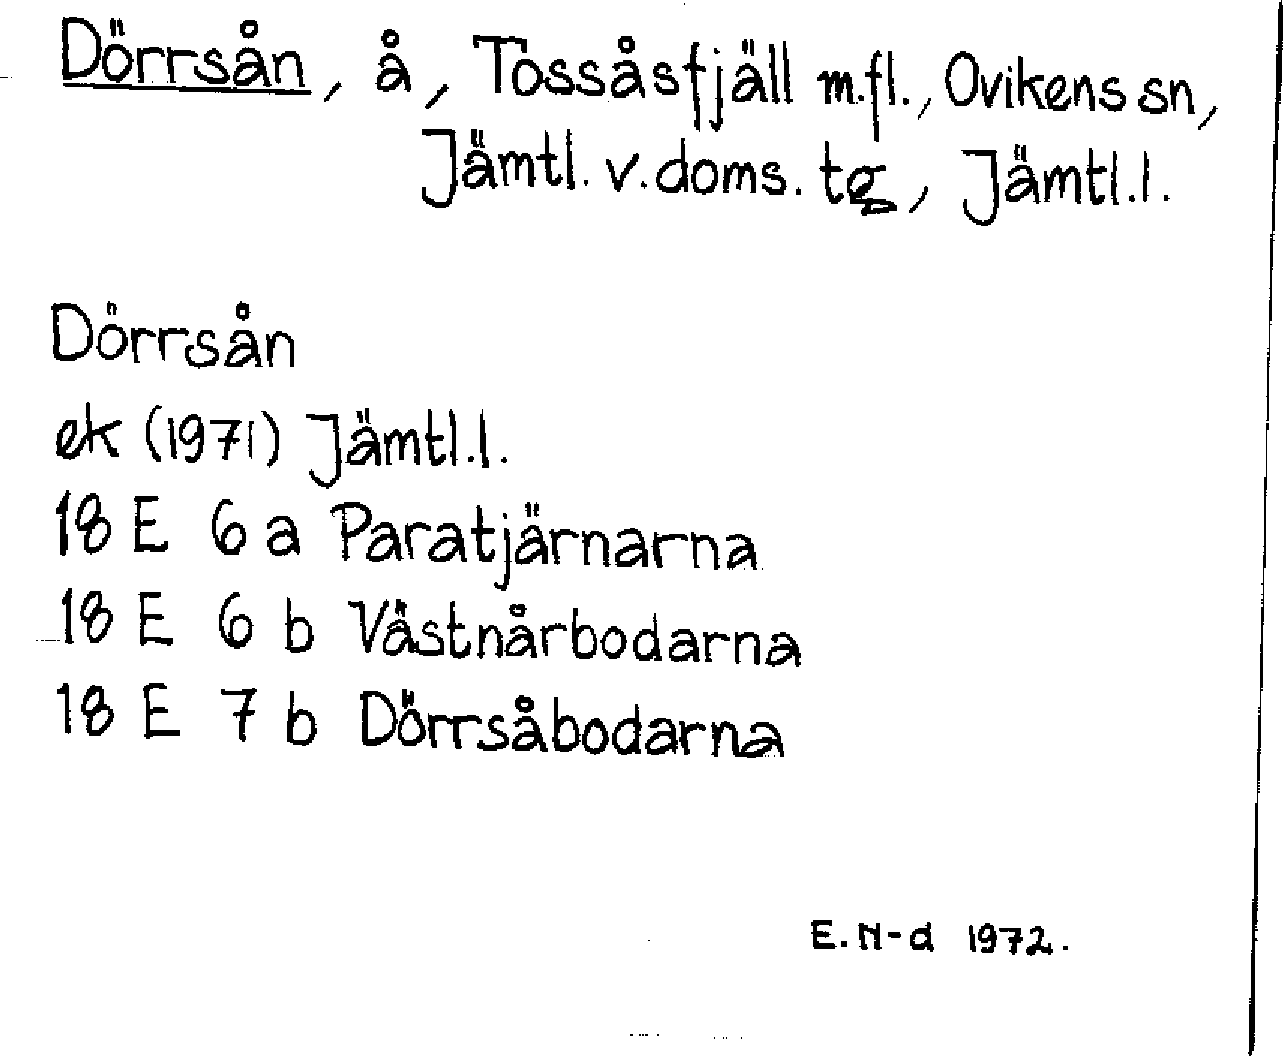 Dörrsån, å, Tossåsfjäll m.fl., Ovikens sn,
Jämtl. v. doms. tg, Jämtl.l.
Dörrsån
ek (1971) Jämtl.l.
18 E 6 a Paratjärnarna
18 E 6 b Västnårbodarna
18 E 7 b Dörrsåbodarna
E. N-d 1972.